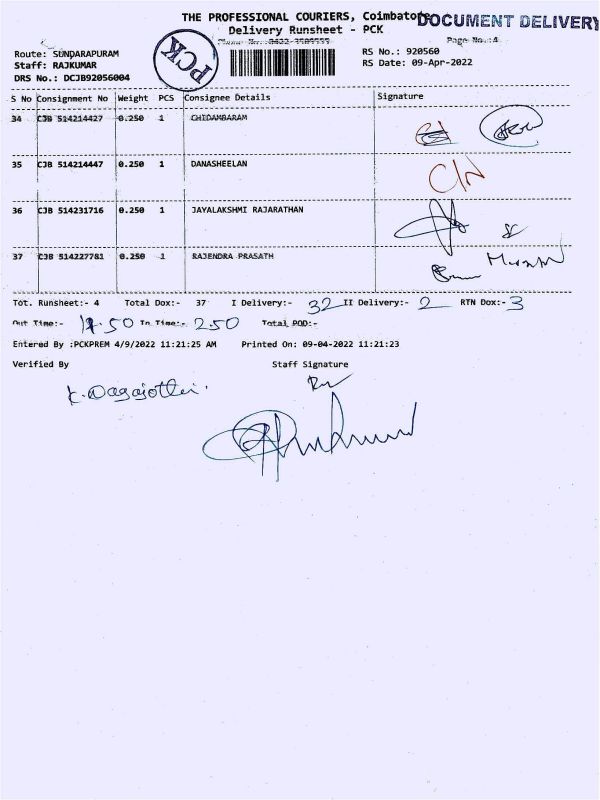 THE PROFESSIONAL COURIERS, Coimbatore DOCUMENT DELIVERY
Delivery Runsheet - PCK
Page No.:4
PCK
Route: SUNDARAPURAM
RS No.: 920560
Staff: RAJKUMAR
RS Date: 09-Apr-2022
DRS No.: DCJB92056004
S No Consignment No Weight PCS Consignee Details Signature
34 CJB 514214427 0.250 1 CHIDAMBARAM
35 CJB 514214447 0.250 1 DANASHEELAN C/N
36 CJB 514231716 0.250 1 JAYALAKSHMI RAJARATHAN
37 CJB 514227781 0.250 1 RAJENDRA PRASATH
Tot. Runsheet:- 4 Total Dox:- 37 I Delivery:- 32 II Delivery:- 2 RTN Dox:- 3
Out Time:- 11.50 In Time:- 2.50 Total POD:-
Entered By :PCKPREM 4/9/2022 11:21:25 AM Printed On: 09-04-2022 11:21:23
Verified By Staff Signature